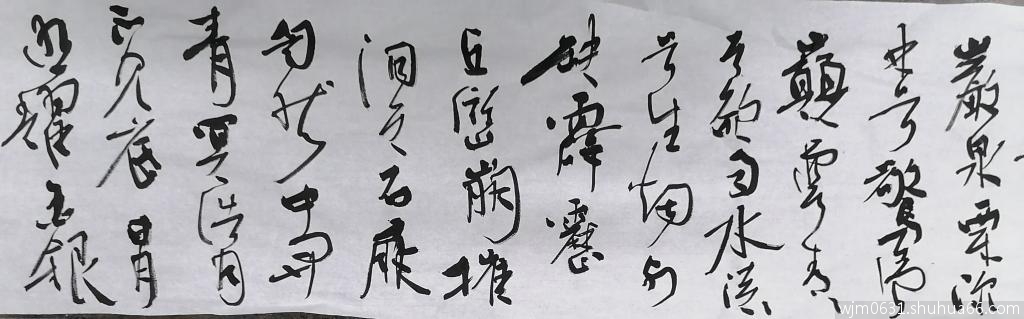 巖泉栗深
林兮驚層
巔雲青青
兮欲雨水澹澹
兮生烟列
缺霹靂
丘巒崩摧
洞天石扉
訇然中開
青冥浩蕩
不見底日月
照耀金銀
wjm0631.shuhua66.com